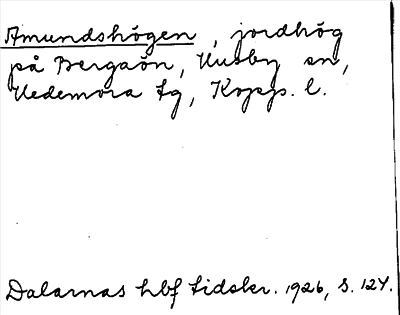 Amundshögen, jordhög
på Bergaön, Husby sn,
Hedemora tg, Kopp. l.
Dalarnas hbf tidskr. 1926, s. 124.